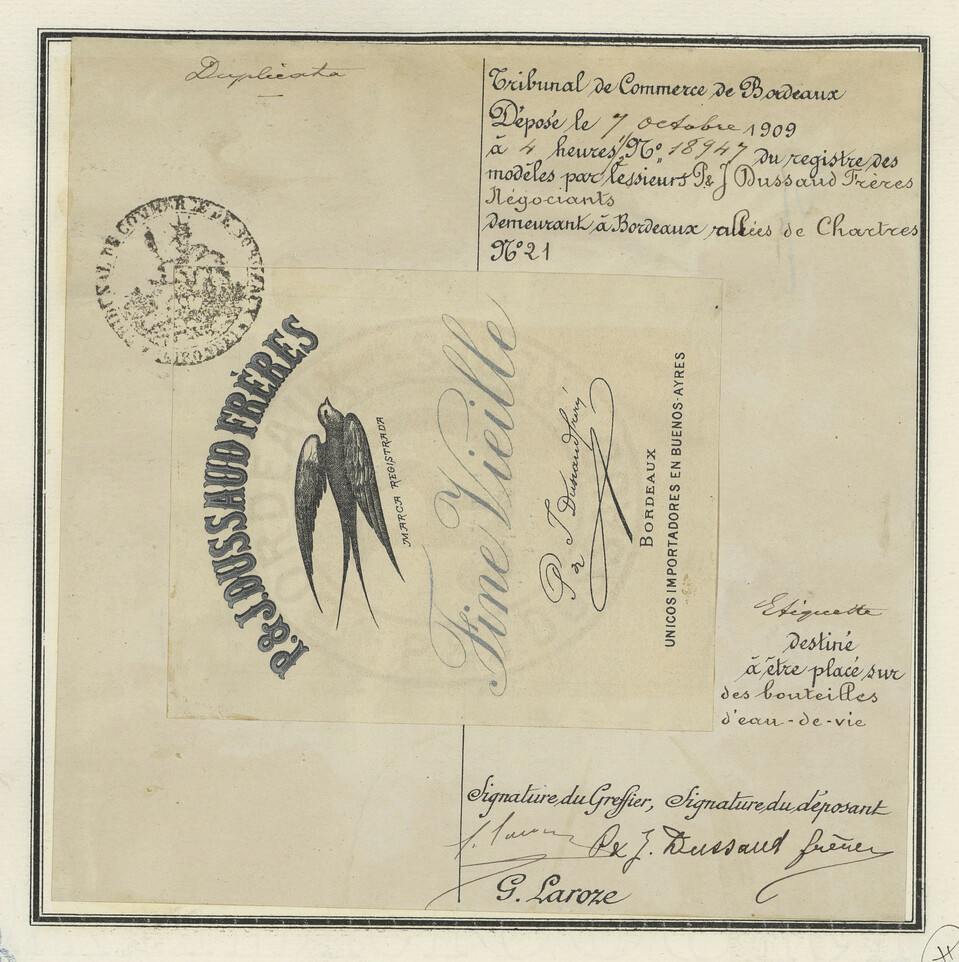 Duplicata
Tribunal de Commerce de Bordeaux
Déposé le 7 octobre 1909
à 4 heures, No 18947 du registre des
modèles par lessieurs P & J Dussaud Frères
Négociants
demeurant à Bordeaux allées de Chartres
No 21
TRIBUNAL DE COMMERCE DE BORDEAUX
P. & J. DUSSAUD FRÈRES
MARCA REGISTRADA
Fine Vieille
P & J Dussaud frères
BORDEAUX
UNICOS IMPORTADORES EN BUENOS-AYRES
Etiquette
destiné
à être placé sur
des bouteilles
d'eau-de-vie
Signature du Greffier, Signature du déposant
P & J. Dussaud frères
G. Laroze